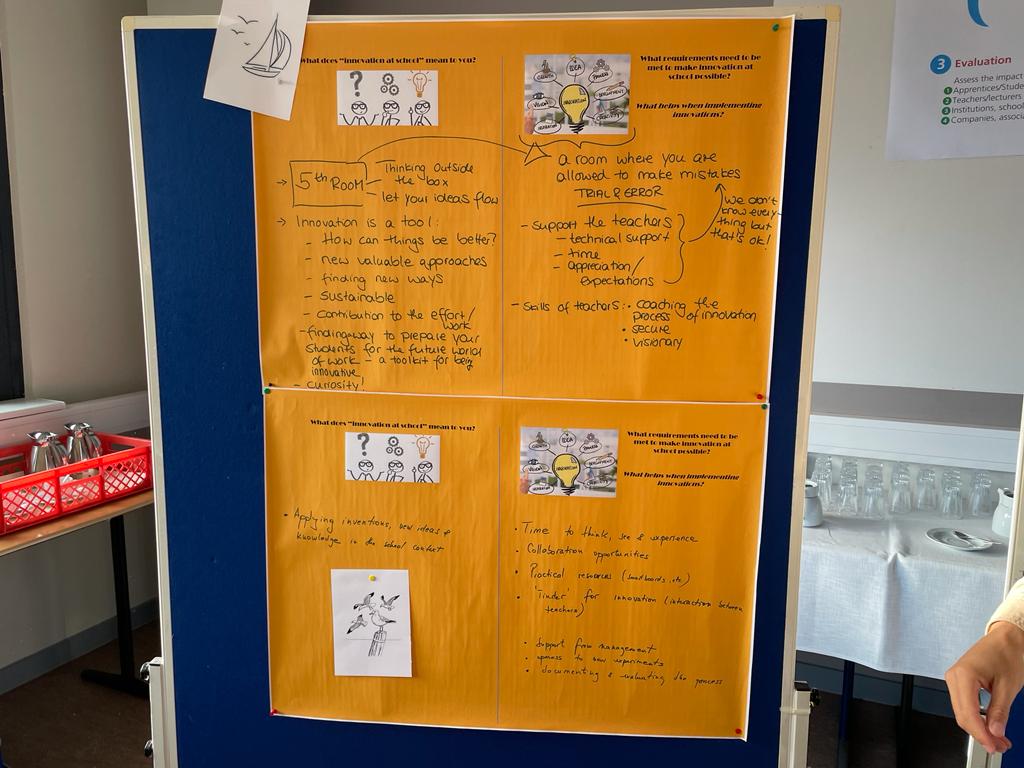 What does "innovation at school" mean to you?
→ 5th ROOM
Thinking outside
the box
let your ideas flow
→ Innovation is a tool:
- How can things be better?
- new valuable approaches
- finding new ways
- sustainable
- contribution to the effort/
work
- finding way to prepare your
students for the future world
of work - a toolkit for being
innovative
- curiosity!
What requirements need to be
met to make innovation at
school possible?
What helps when implementing
innovations?
IDEA
GROWTH
POWER
VISION
INNOVATION
DEVELOPMENT
INSPIRATION
CREATIVITY
a room where you are
allowed to make mistakes
TRIAL & ERROR
we don't
know every-
thing but
that's ok!
- support the teachers
- technical support
- time
- appreciation/
expectations
- skills of teachers: • coaching the
process of innovation
• secure
• visionary
What does "innovation at school" mean to you?
• Applying inventions, new ideas &
knowledge in the school context
What requirements need to be
met to make innovation at
school possible?
What helps when implementing
innovations?
IDEA
GROWTH
POWER
VISION
INNOVATION
DEVELOPMENT
INSPIRATION
CREATIVITY
• Time to think, see & experience
• Collaboration opportunities
• Practical resources (smartboards, etc)
• 'Tinder' for innovation (interaction between
teachers)
• Support from management
• openness to new experiments
• documenting & evaluating the process
3 Evaluation
Assess the impact
1 Apprentices/Stude
2 Teachers/lecturers
3 Institutions, schoo
4 Companies, associ